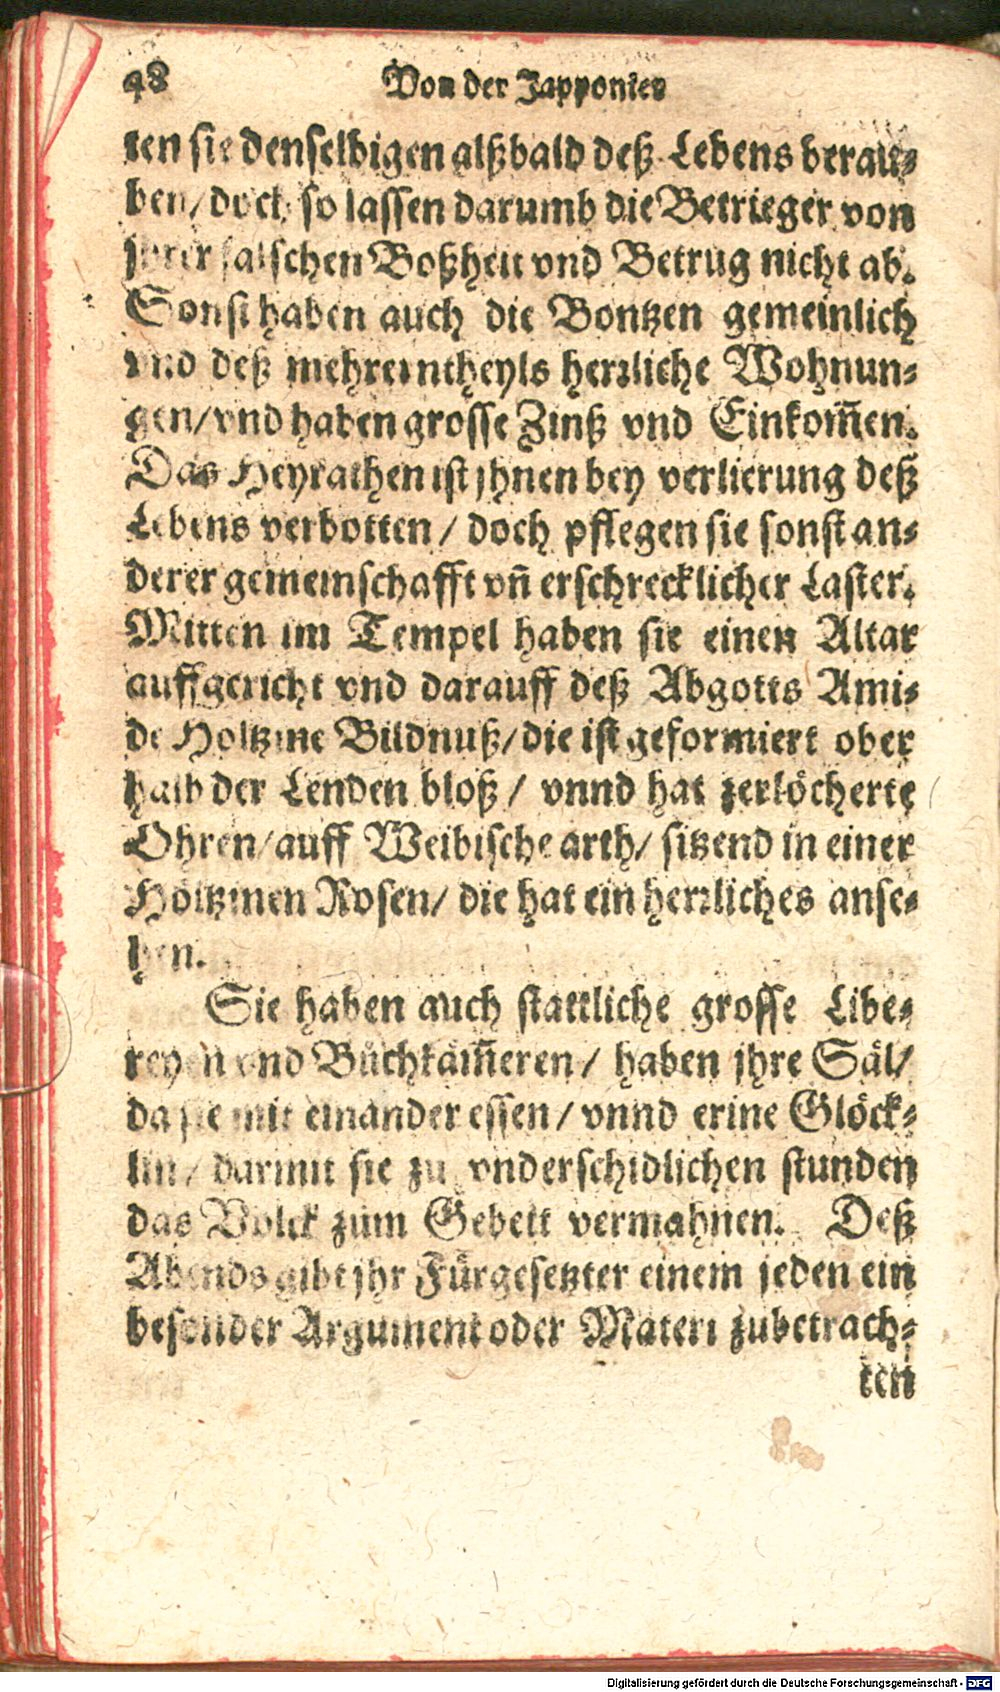 48 Von der Jappontes
ten sie denselbigen alßbald deß Lebens berau-
ben/ doch so lassen darumb die Betrieger von
jhrer falschen Boßheit vnd Betrug nicht ab.
Sonst haben auch die Bontzen gemeinlich
vnd deß mehrerntheyls herrliche Wohnun-
gen/ vnd haben grosse Zinß vnd Einkom̃en.
Das Heyrathen ist jhnen bey verlierung deß
Lebens verbotten / doch pflegen sie sonst an-
derer gemeinschafft vñ erschrecklicher Laster.
Mitten im Tempel haben sie einen Altar
auffgericht vnd darauff deß Abgotts Ami-
de Holtzine Bildnuß/ die ist geformiert ober
halb der Lenden bloß / vnnd hat zerlöcherte
Ohren/ auff Weibische arth/ sitzend in einer
Holtzinen Rosen/ die hat ein herrliches anse-
hen.
Sie haben auch stattliche grosse Libe-
reyen vnd Büchkam̃eren / haben jhre Säl/
da sie mit einander essen / vnnd erine Glöck-
lin / darmit sie zu vnderschidlichen stunden
das Volck zum Gebett vermahnen. Deß
Abends gibt jhr Fürgesetzter einem jeden ein
besonder Argument oder Materi zubetrach-
ten
Digitalisierung gefördert durch die Deutsche Forschungsgemeinschaft - DFG